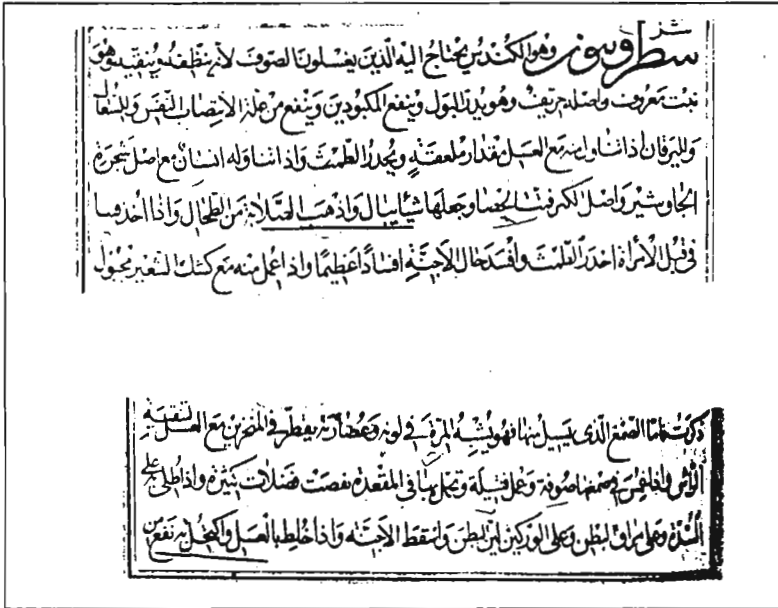 وهو الكندس يحتاج اليه الذين يغسلون الصوف لانه ينظفه وينقيه وهو
نبت معروف واصله حريف وهو يدر البول وينفع المكبودين وينفع من علة الانتصاب النفس والسعال
ولليرقان اذا تناول منه مع العسل مقدار ملعقةٍ ويحدر الطمث واذا تناوله انسان مع اصل شجرة
الجاوشير واصل الكبر فتت الحصا وجعلها شيئا يبال واذهب الصلابة من الطحال واذا اخذ
في قبل الامراة احدر الطمث وافسد حال الاجنّة افسادًا عظيمًا واذا عمل منه مع كشك الشعير مجبول
ذكرت فاما الصمغ الذي يسيل منها فهو يشبه المرة في لونه وعصارته يقطر في المنخرين مع العسل لتنقية
الراس واذا غمس في صمغها صوفة وعمل فتيلة وتحمل بها في المقعدة نفصت فضلات كثيرة واذا طلي به على
السرة وعلى مراق البطن وعلى الوركين لين البطن واسقط الاجنّة واذا خلط بالعسل واكتحل به نفع من